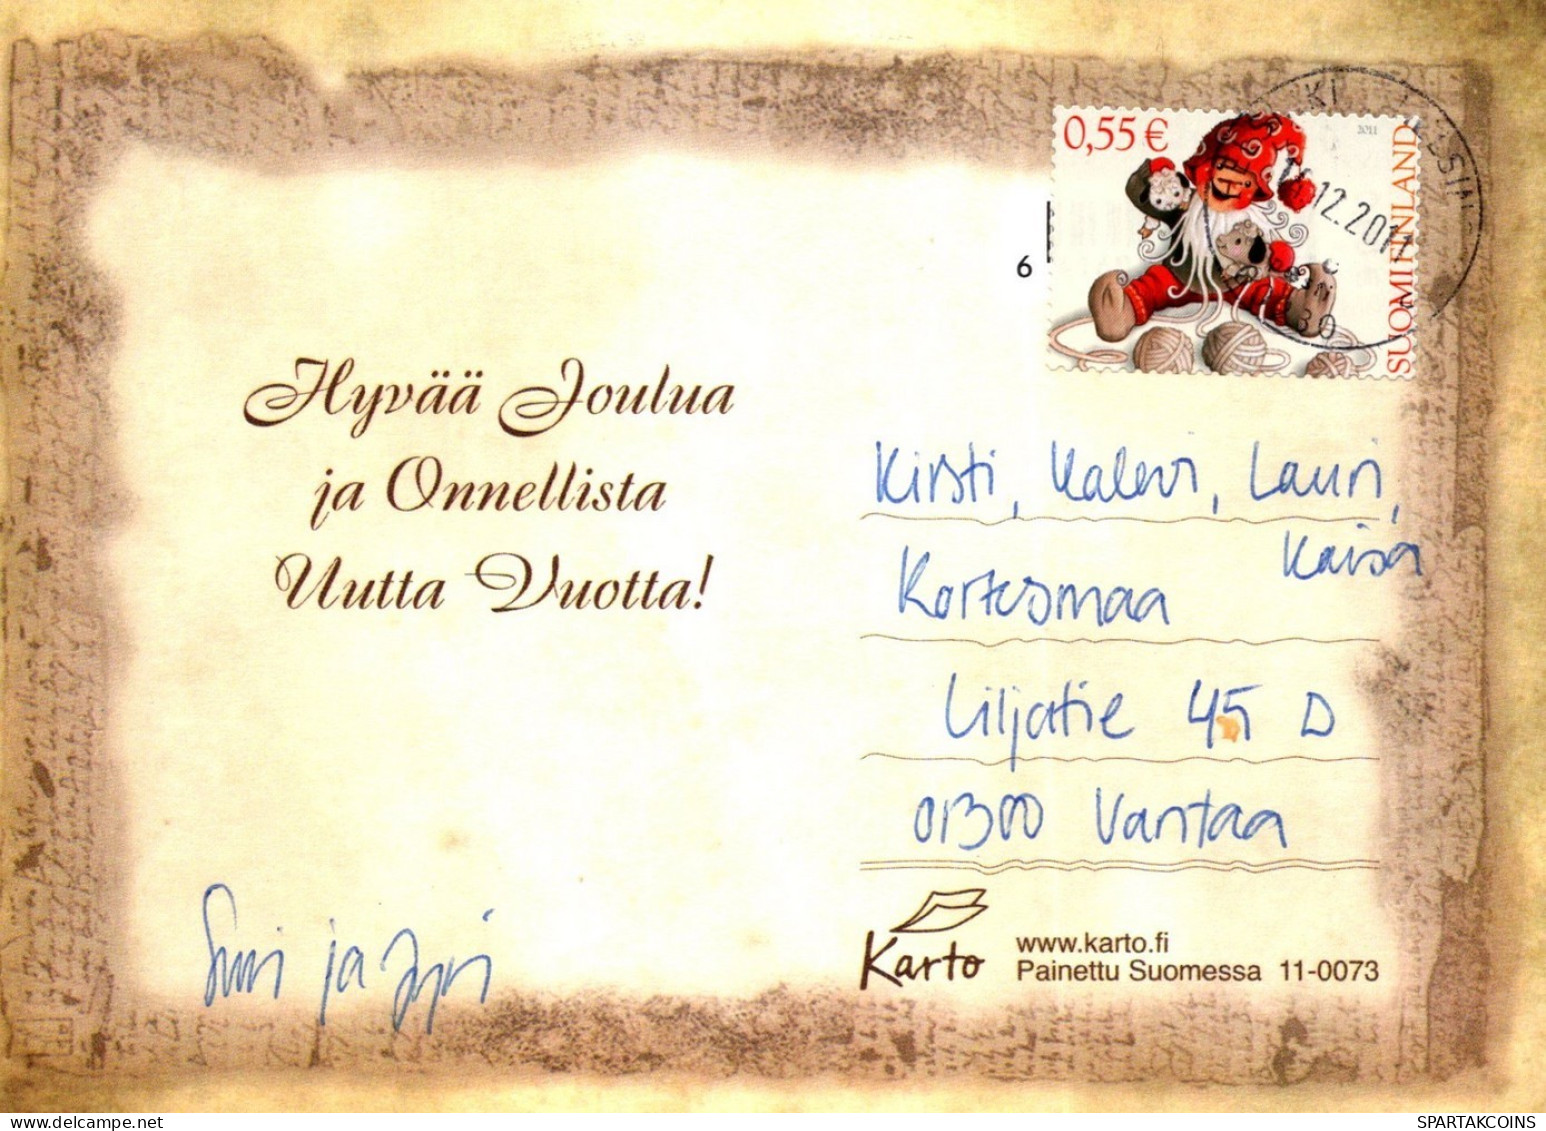 0,55 €
2011
SUOMI FINLAND
12.2011
6
Hyvää Joulua
ja Onnellista
Uutta Vuotta!
Kirsti, Kalevi, Lauri,
Kaisa
Kortesmaa
Liljatie 45 D
01300 Vantaa
Suvi ja Jyri
Karto
www.karto.fi
Painettu Suomessa 11-0073
SPARTAKCOINS